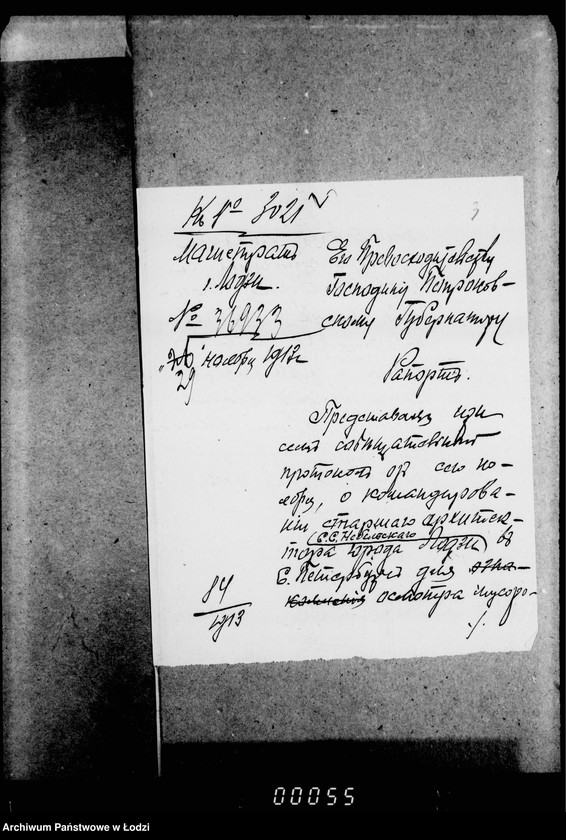 Къ № 3021
3
Магистратъ
г. Лодзи.
№ 36933
29 ноября 1912 г.
Его Превосходительству
Господину Петроков-
скому Губернатору
Рапортъ.
Представляя при
семъ совѣщательный
протоколъ отъ сего но-
ября, о командирова-
ніи старшаго архитек-
(С.С. Небельскаго)
тора города Лодзи въ
С. Петербургъ для
осмотра мусоро-
./.
84
1913
00055
Archiwum Państwowe w Łodzi